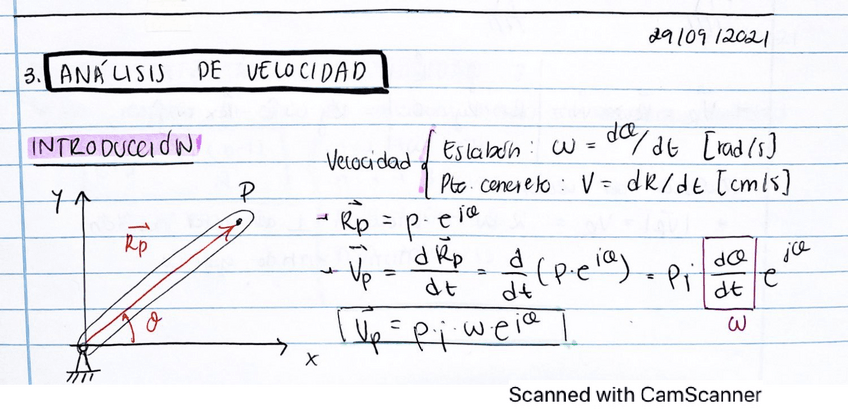 29/09/2021
3. ANÁLISIS DE VELOCIDAD
INTRODUCCIÓN
Velocidad { Eslabón: ω = dθ/dt [rad/s]
Pto. concreto: V = dR/dt [cm/s]
y
P
R⃗p
θ
x
→ R⃗p = p · e^iθ
→ V⃗p = dR⃗p/dt = d/dt (p · e^iθ) = p j dθ/dt e^jθ
ω
V⃗p = p · j · ω · e^iθ
Scanned with CamScanner